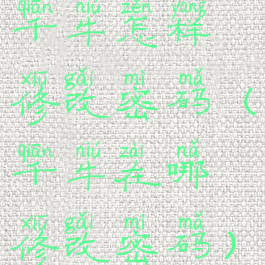 qiān niú zěn yàng
千牛怎样
xiū gǎi mì mǎ
修改密码(
qiān niú zài nǎ
千牛在哪
xiū gǎi mì mǎ
修改密码)